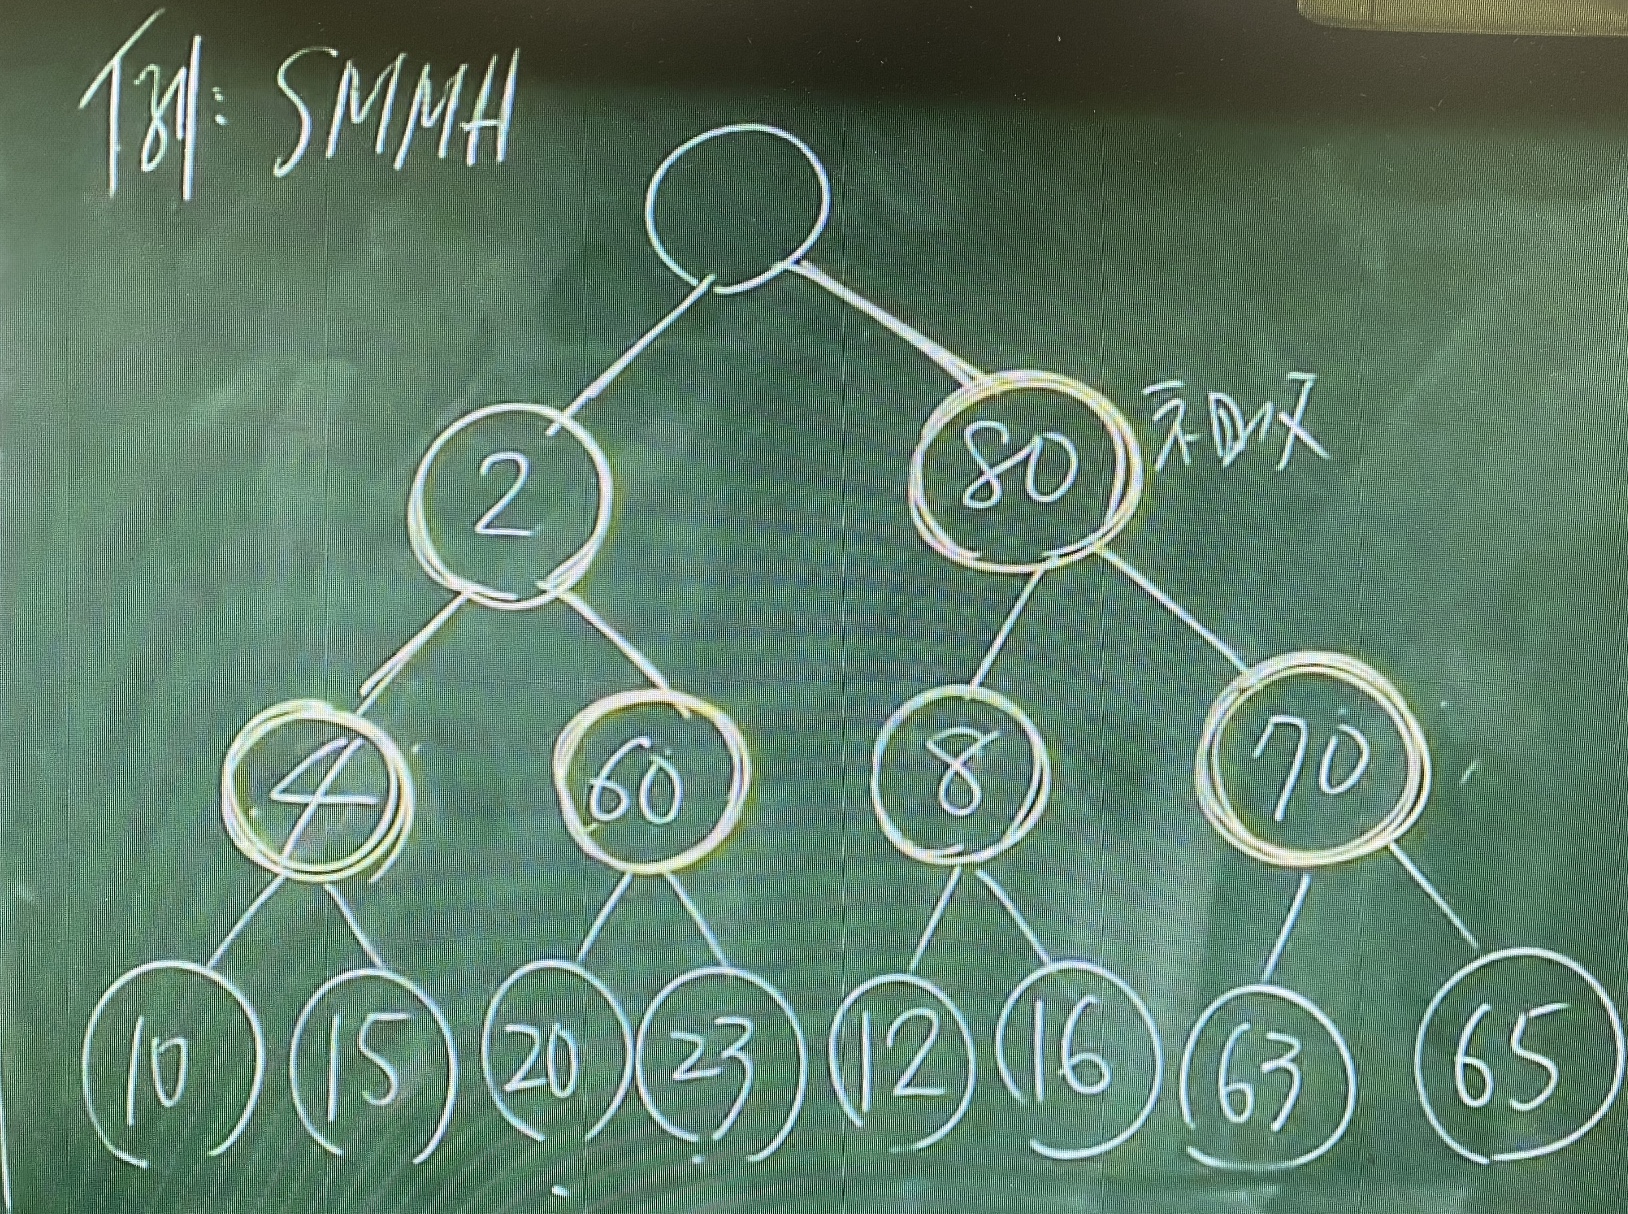 例: SMMH
2
80
4
60
8
70
10
15
20
23
12
16
63
65